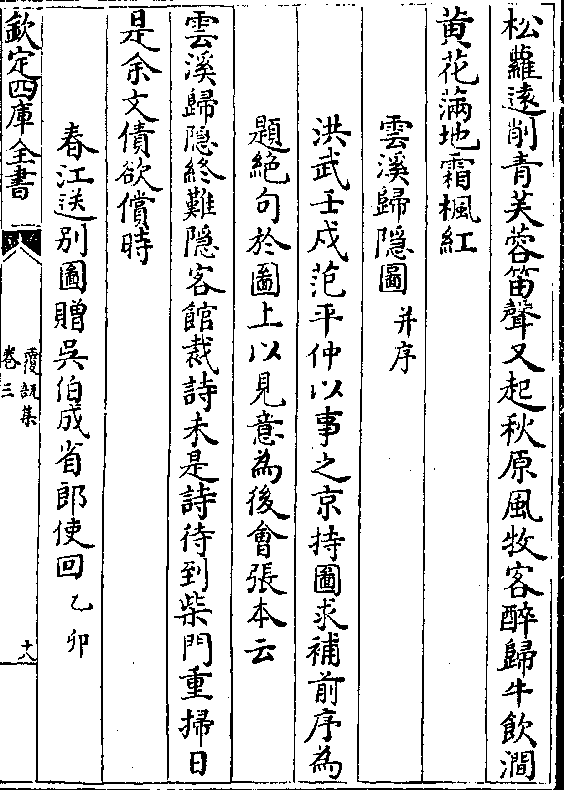 松蘿遠削青芙蓉笛聲又起秋原風牧客醉歸牛飲澗
黄花滿地霜楓紅
雲溪歸隱圖并序
洪武壬戍范平仲以事之京持圖求補前序為
題絶句於圖上以見意為後會張本云
雲溪歸隱終難隱客館裁詩未是詩待到柴門重掃日
是余文債欲償時
春江送别圖贈吳伯成省郎使回乙卯
欽定四庫全書
覆瓿集
卷三
十八